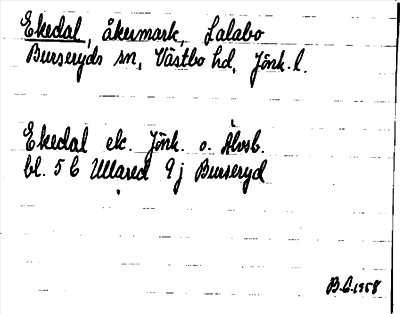 Ekedal, åkermark, Lalabo
Burseryds sn, Västbo hd, Jönk. l.
Ekedal ek. Jönk. o. Älvsb.
bl. 5 C Ullared 9 j Burseryd
B.C. 1958